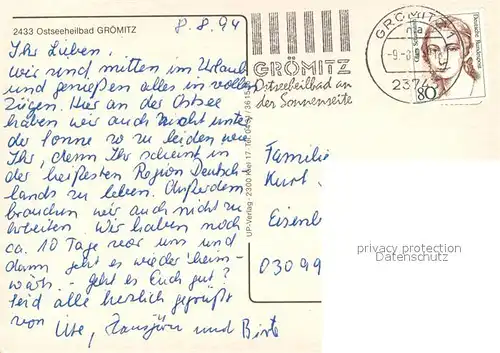 2433 Ostseeheilbad GRÖMITZ
8.8.94
Ihr Lieben.
Wir sind mitten im Urlaub
und genießen alles in vollen
Zügen. Hier an der Ostsee
haben wir auch nicht unter
der Sonne so zu leiden wie
Ihr, denn Ihr scheint in
der heißesten Region Deutsch-
lands zu leben. Außerdem
brauchen wir auch nicht zu
arbeiten. Wir haben noch
ca. 10 Tage vor uns und
dann geht es wieder heim-
wärts. - geht es Euch gut?
Seid alle herzlich gegrüßt
von Ute, Hansjörn und Birte
UP-Verlag · 2300 Kiel 17 · Tel.
GRÖMITZ
Ostseeheilbad an
der Sonnenseite
GRÖMITZ
23743
Deutsche Bundespost
80
Familie
Kurt
Eisenb
03099
privacy protection
Datenschutz